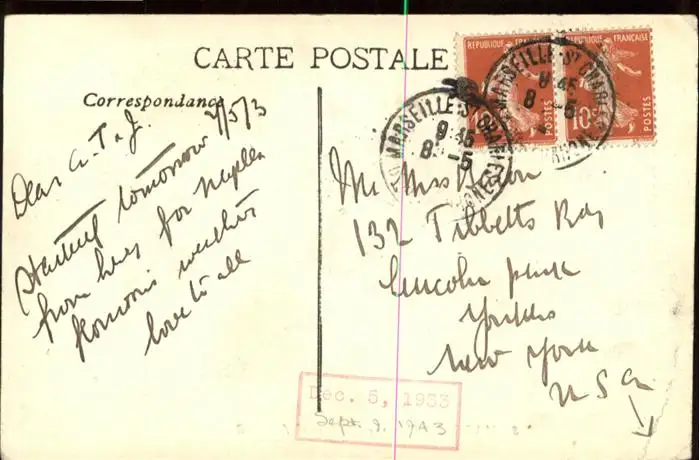 CARTE POSTALE
Correspondance
Dear G. T & J.
Starting tomorrow
from here for Naples
weather
love to all
REPUBLIQUE FRANÇAISE
10c
POSTES
REPUBLIQUE FRANÇAISE
10c
POSTES
MARSEILLE-ST CHARLES
9 45
8 -5
RHONE
MARSEILLE-ST CHARLES
9 45
8 -5
RHONE
132 Tibbetts Rd
Lincoln Park
Yonkers
New York
U S A
Dec. 5, 1933
Sept. 9. 1943